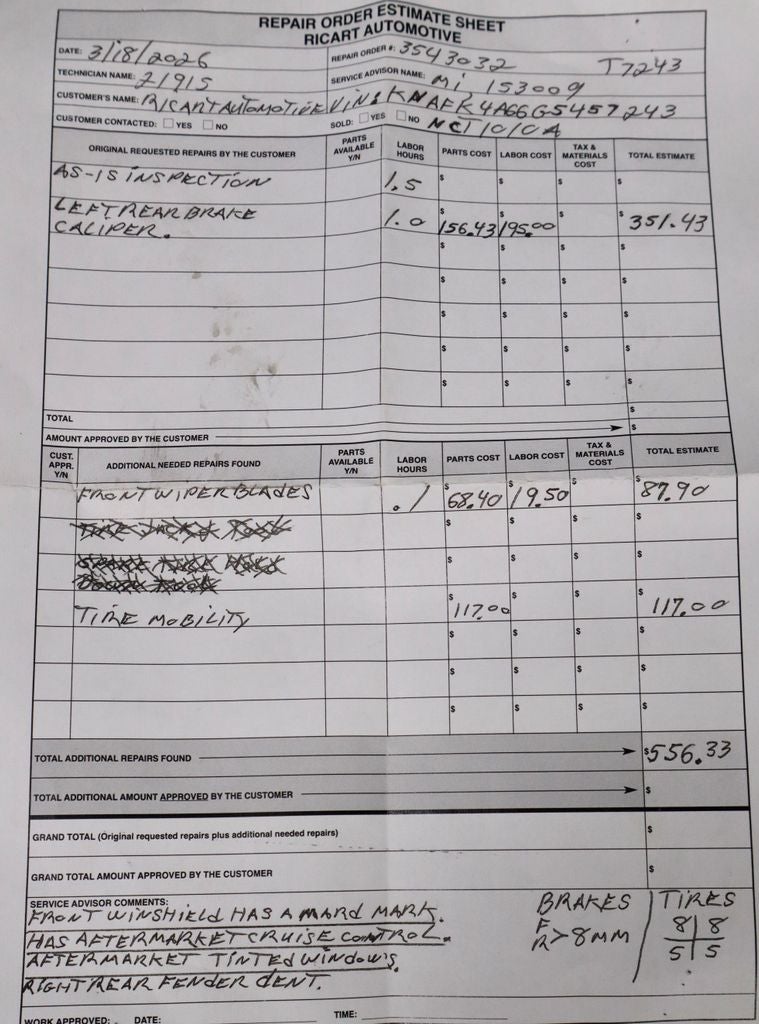 REPAIR ORDER ESTIMATE SHEET
RICART AUTOMOTIVE
DATE: 3/18/2026 REPAIR ORDER #: 3543032 T7243
TECHNICIAN NAME: 21915 SERVICE ADVISOR NAME: Mi, 153009
CUSTOMER'S NAME: RICART AUTOMOTIVE VIN: KNAFK4A66G5457243
CUSTOMER CONTACTED: YES NO SOLD: YES NO NCT1010A
ORIGINAL REQUESTED REPAIRS BY THE CUSTOMER PARTS AVAILABLE Y/N LABOR HOURS PARTS COST LABOR COST TAX & MATERIALS COST TOTAL ESTIMATE
AS-IS INSPECTION 1.5 $ $ $ $
LEFT REAR BRAKE CALIPER. 1.0 $156.43 $195.00 $ $351.43
$ $ $ $
$ $ $ $
$ $ $ $
$ $ $ $
$ $ $ $
TOTAL $
AMOUNT APPROVED BY THE CUSTOMER $
CUST. APPR. Y/N ADDITIONAL NEEDED REPAIRS FOUND PARTS AVAILABLE Y/N LABOR HOURS PARTS COST LABOR COST TAX & MATERIALS COST TOTAL ESTIMATE
FRONT WIPER BLADES .1 $68.40 $19.50 $ $87.90
$ $ $ $
$ $ $ $
TIRE MOBILITY $117.00 $ $ $117.00
$ $ $ $
$ $ $ $
$ $ $ $
TOTAL ADDITIONAL REPAIRS FOUND $556.33
TOTAL ADDITIONAL AMOUNT APPROVED BY THE CUSTOMER $
GRAND TOTAL (Original requested repairs plus additional needed repairs) $
GRAND TOTAL AMOUNT APPROVED BY THE CUSTOMER $
SERVICE ADVISOR COMMENTS:
FRONT WINSHIELD HAS A MARD MARK.
HAS AFTERMARKET CRUISE CONTROL.
AFTERMARKET TINTED WINDOWS.
RIGHT REAR FENDER DENT.
BRAKES
F
R >8MM
TIRES
8 | 8
5 | 5
WORK APPROVED: DATE: TIME: